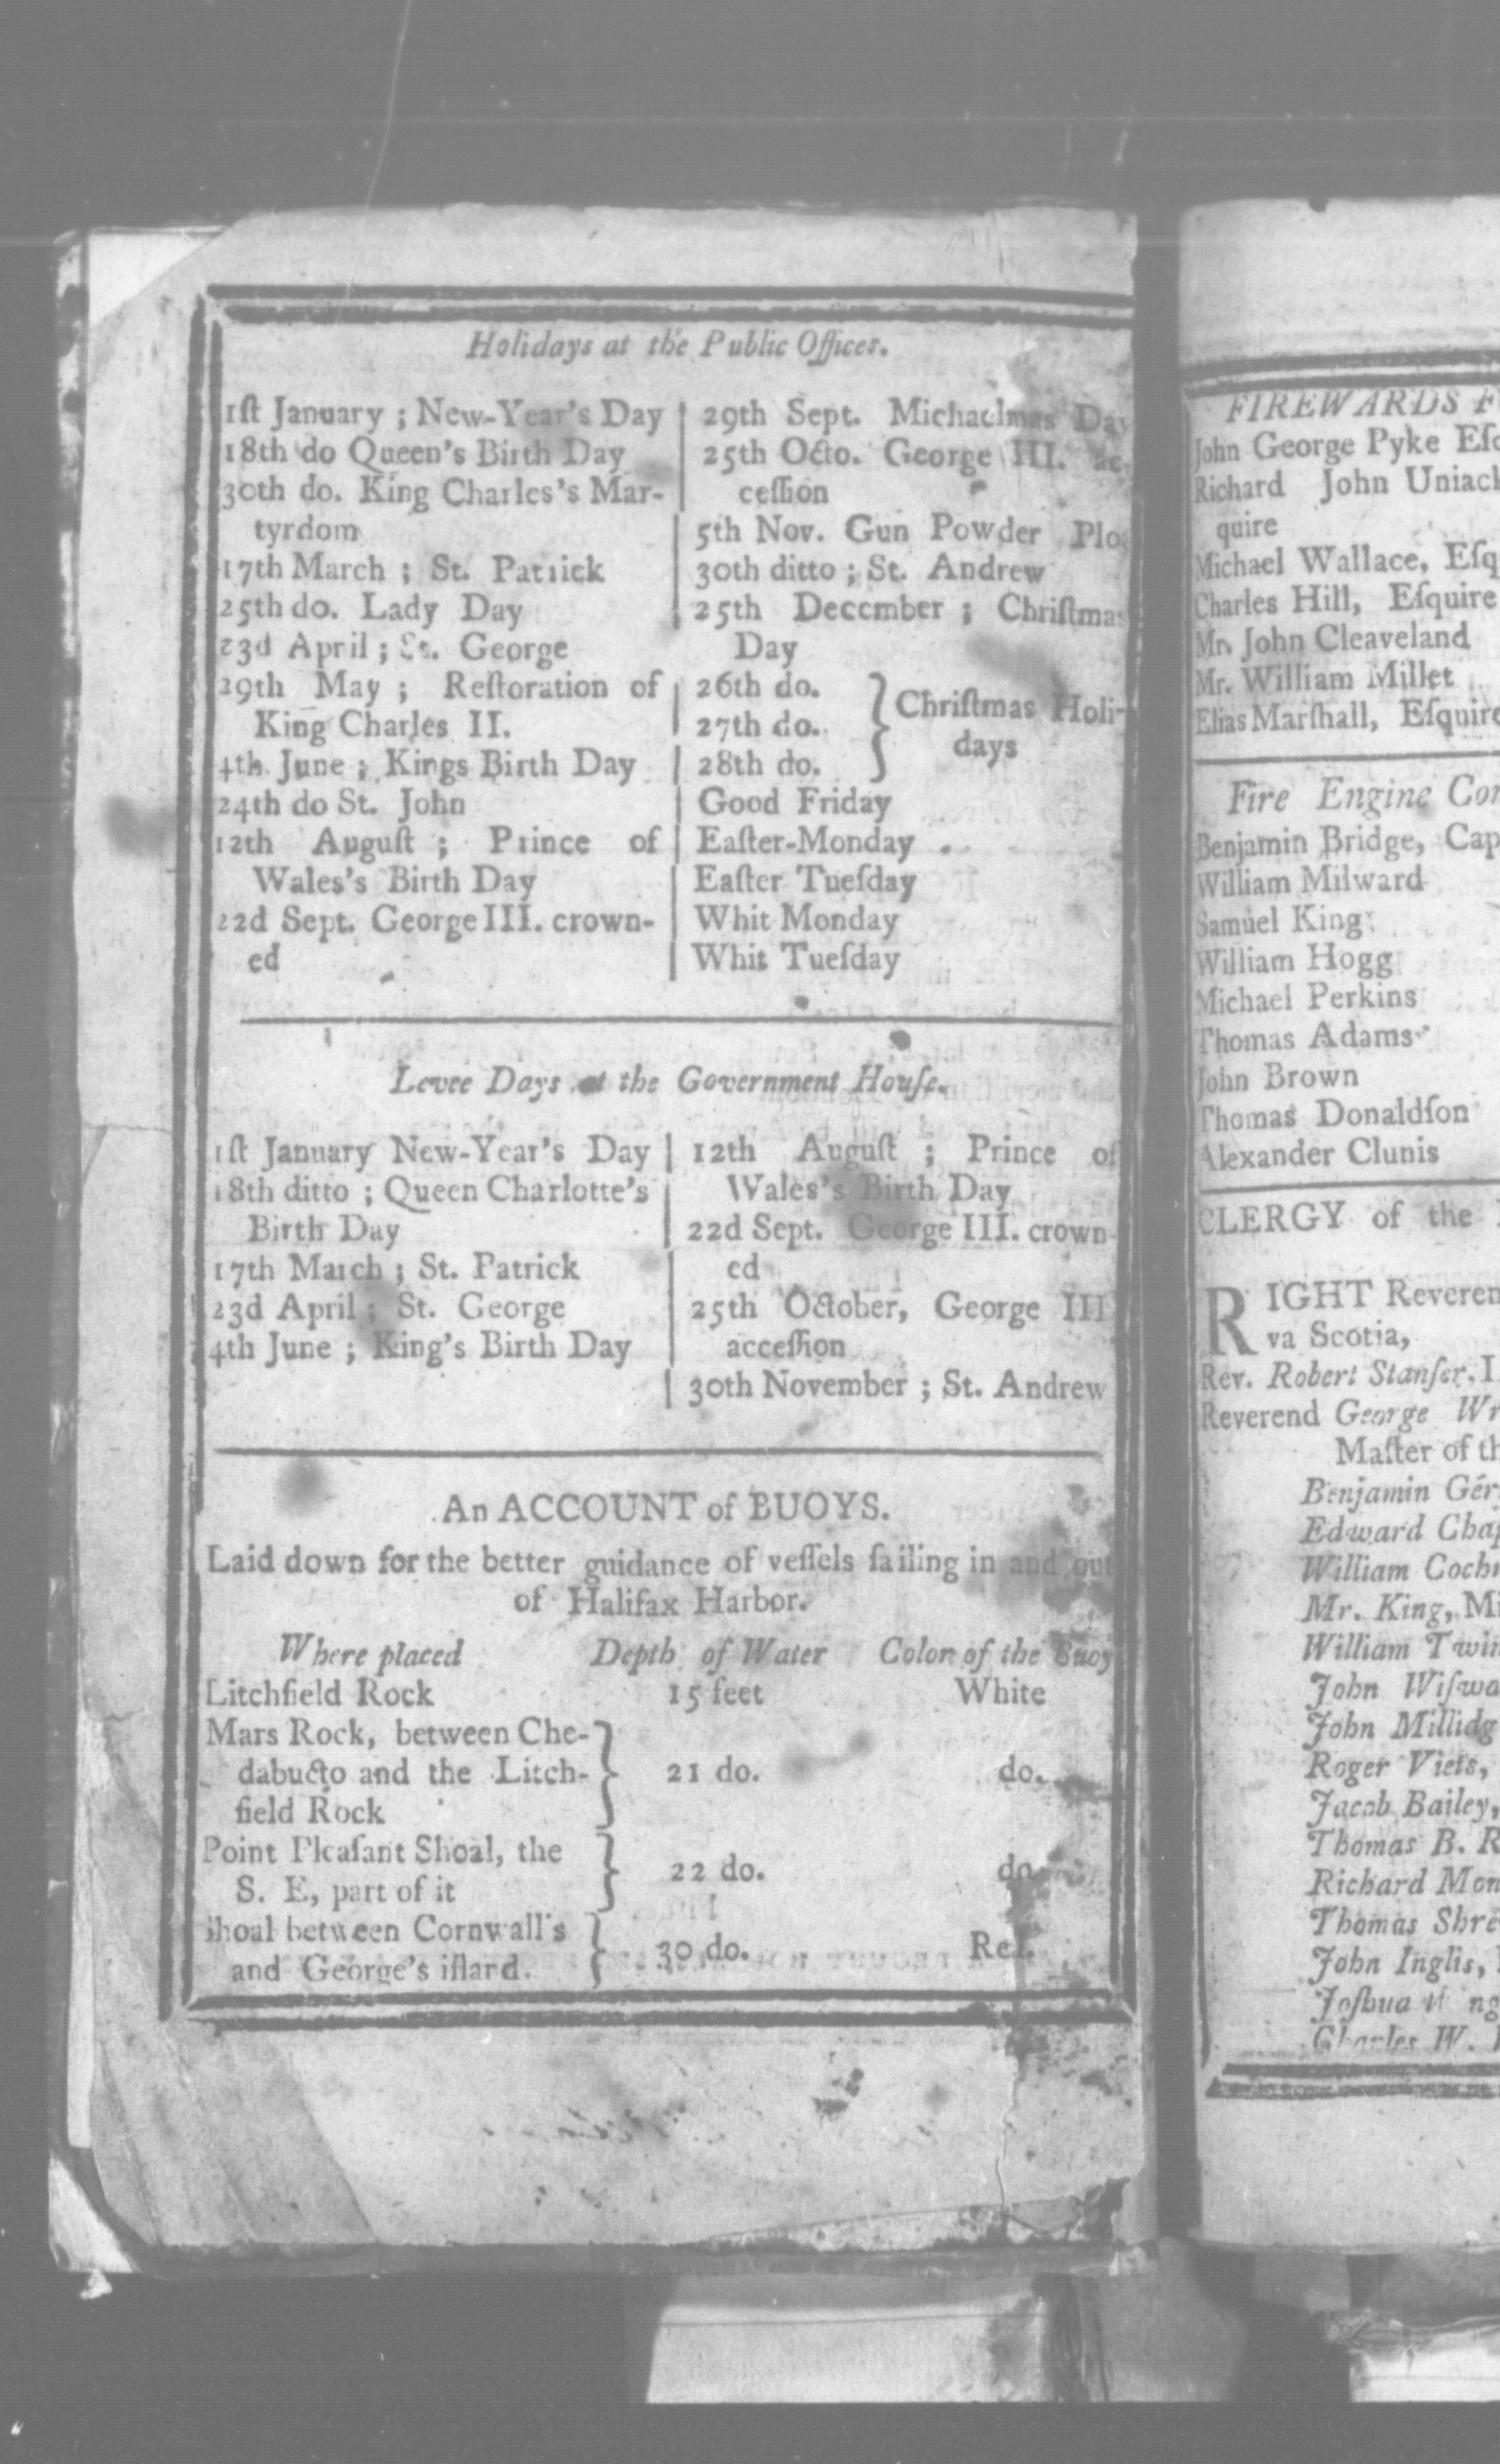 Holidays at the Public Offices.
1ſt January ; New-Year's Day
18th do Queen's Birth Day
30th do. King Charles's Mar-
tyrdom
17th March ; St. Patrick
25th do. Lady Day
23d April ; St. George
29th May ; Reſtoration of
King Charles II.
4th June ; Kings Birth Day
24th do St. John
12th Auguſt ; Prince of
Wales's Birth Day
22d Sept. George III. crown-
ed
29th Sept. Michaelmas Day
25th Octo. George III. ac-
ceſſion
5th Nov. Gun Powder Plo
30th ditto ; St. Andrew
25th December ; Chriſtmas
Day
26th do.
27th do.
28th do.
Chriſtmas Holi-
days
Good Friday
Eaſter-Monday
Eaſter Tueſday
Whit Monday
Whit Tueſday
Levee Days at the Government Houſe.
1ſt January New-Year's Day
18th ditto ; Queen Charlotte's
Birth Day
17th March ; St. Patrick
23d April ; St. George
4th June ; King's Birth Day
12th Auguſt ; Prince of
Wales's Birth Day
22d Sept. George III. crown-
ed
25th October, George III
acceſſion
30th November ; St. Andrew
An ACCOUNT of BUOYS.
Laid down for the better guidance of veſſels ſailing in and out
of Halifax Harbor.
Where placed Depth of Water Color of the Buoy
Litchfield Rock 15 feet White
Mars Rock, between Che-
dabucto and the Litch- 21 do. do.
field Rock
Point Pleaſant Shoal, the
22 do. do.
S. E, part of it
Shoal between Cornwall's
30 do. Red.
and George's iſland.
FIREWARDS F
John George Pyke Eſq
Richard John Uniack
quire
Michael Wallace, Eſq
Charles Hill, Eſquire
Mr. John Cleaveland
Mr. William Millet
Elias Marſhall, Eſquire
Fire Engine Com
Benjamin Bridge, Cap
William Milward
Samuel King
William Hogg
Michael Perkins
Thomas Adams
John Brown
Thomas Donaldſon
Alexander Clunis
CLERGY of the
RIGHT Reveren
va Scotia,
Rev. Robert Stanſer, 
Reverend George Wr
Maſter of th
Benjamin Ger
Edward Chap
William Cochr
Mr. King, Mi
William Twin
John Wiſwa
John Millidg
Roger Viets,
Jacob Bailey,
Thomas B. R
Richard Mon
Thomas Shre
John Inglis,
Joſhua W ng
Charles W.